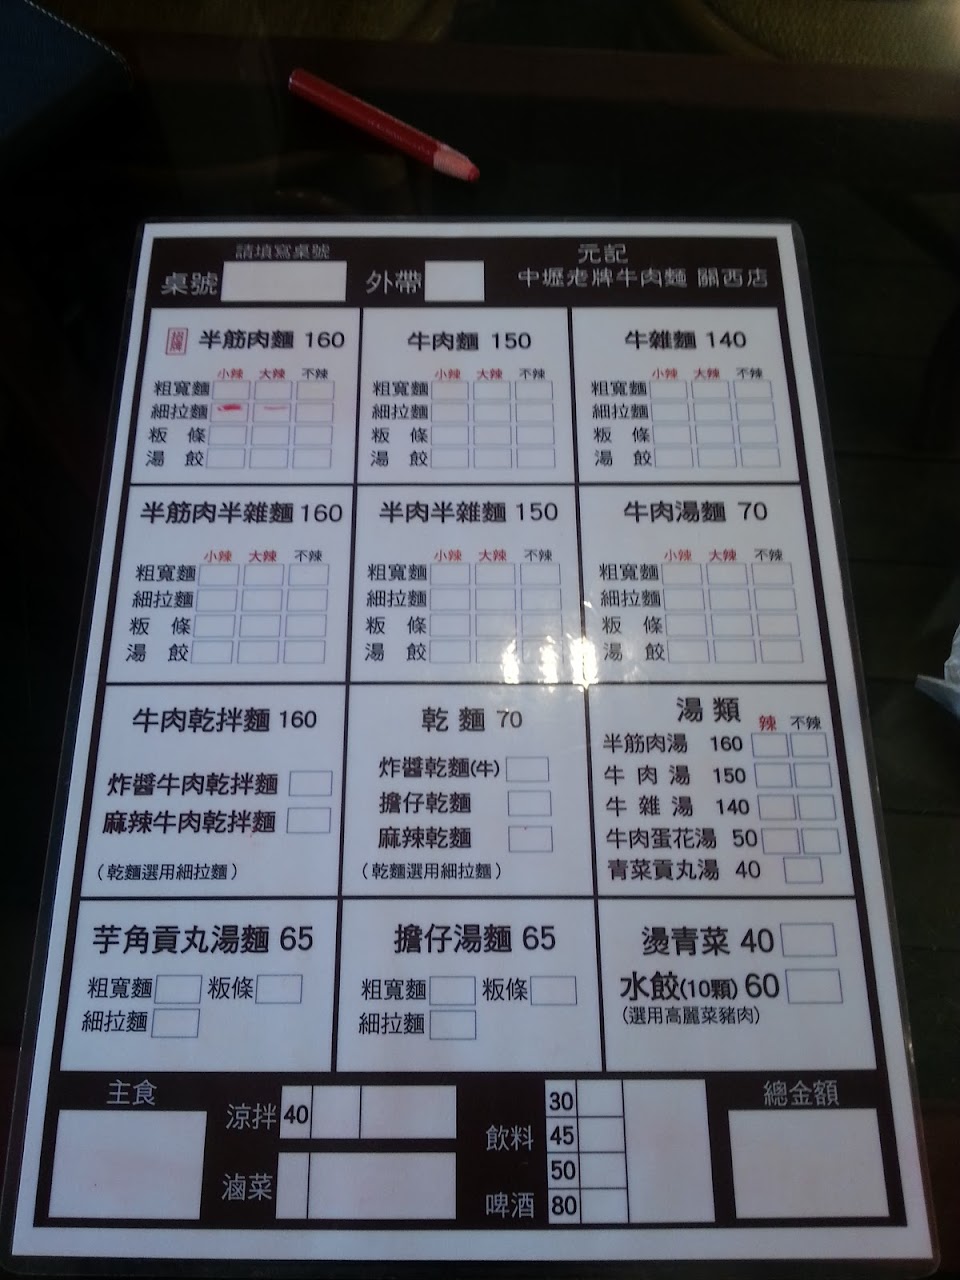 請填寫桌號
桌號 外帶
元記
中壢老牌牛肉麵 關西店
招牌 半筋肉麵 160
小辣 大辣 不辣
粗寬麵
細拉麵
粄條
湯餃
牛肉麵 150
小辣 大辣 不辣
粗寬麵
細拉麵
粄條
湯餃
牛雜麵 140
小辣 大辣 不辣
粗寬麵
細拉麵
粄條
湯餃
半筋肉半雜麵 160
小辣 大辣 不辣
粗寬麵
細拉麵
粄條
湯餃
半肉半雜麵 150
小辣 大辣 不辣
粗寬麵
細拉麵
粄條
湯餃
牛肉湯麵 70
小辣 大辣 不辣
粗寬麵
細拉麵
粄條
湯餃
牛肉乾拌麵 160
炸醬牛肉乾拌麵
麻辣牛肉乾拌麵
(乾麵選用細拉麵)
乾麵 70
炸醬乾麵(牛)
擔仔乾麵
麻辣乾麵
(乾麵選用細拉麵)
湯類 辣 不辣
半筋肉湯 160
牛肉湯 150
牛雜湯 140
牛肉蛋花湯 50
青菜貢丸湯 40
芋角貢丸湯麵 65
粗寬麵 粄條
細拉麵
擔仔湯麵 65
粗寬麵 粄條
細拉麵
燙青菜 40
水餃(10顆) 60
(選用高麗菜豬肉)
主食
涼拌 40
滷菜
飲料 30
45
50
啤酒 80
總金額